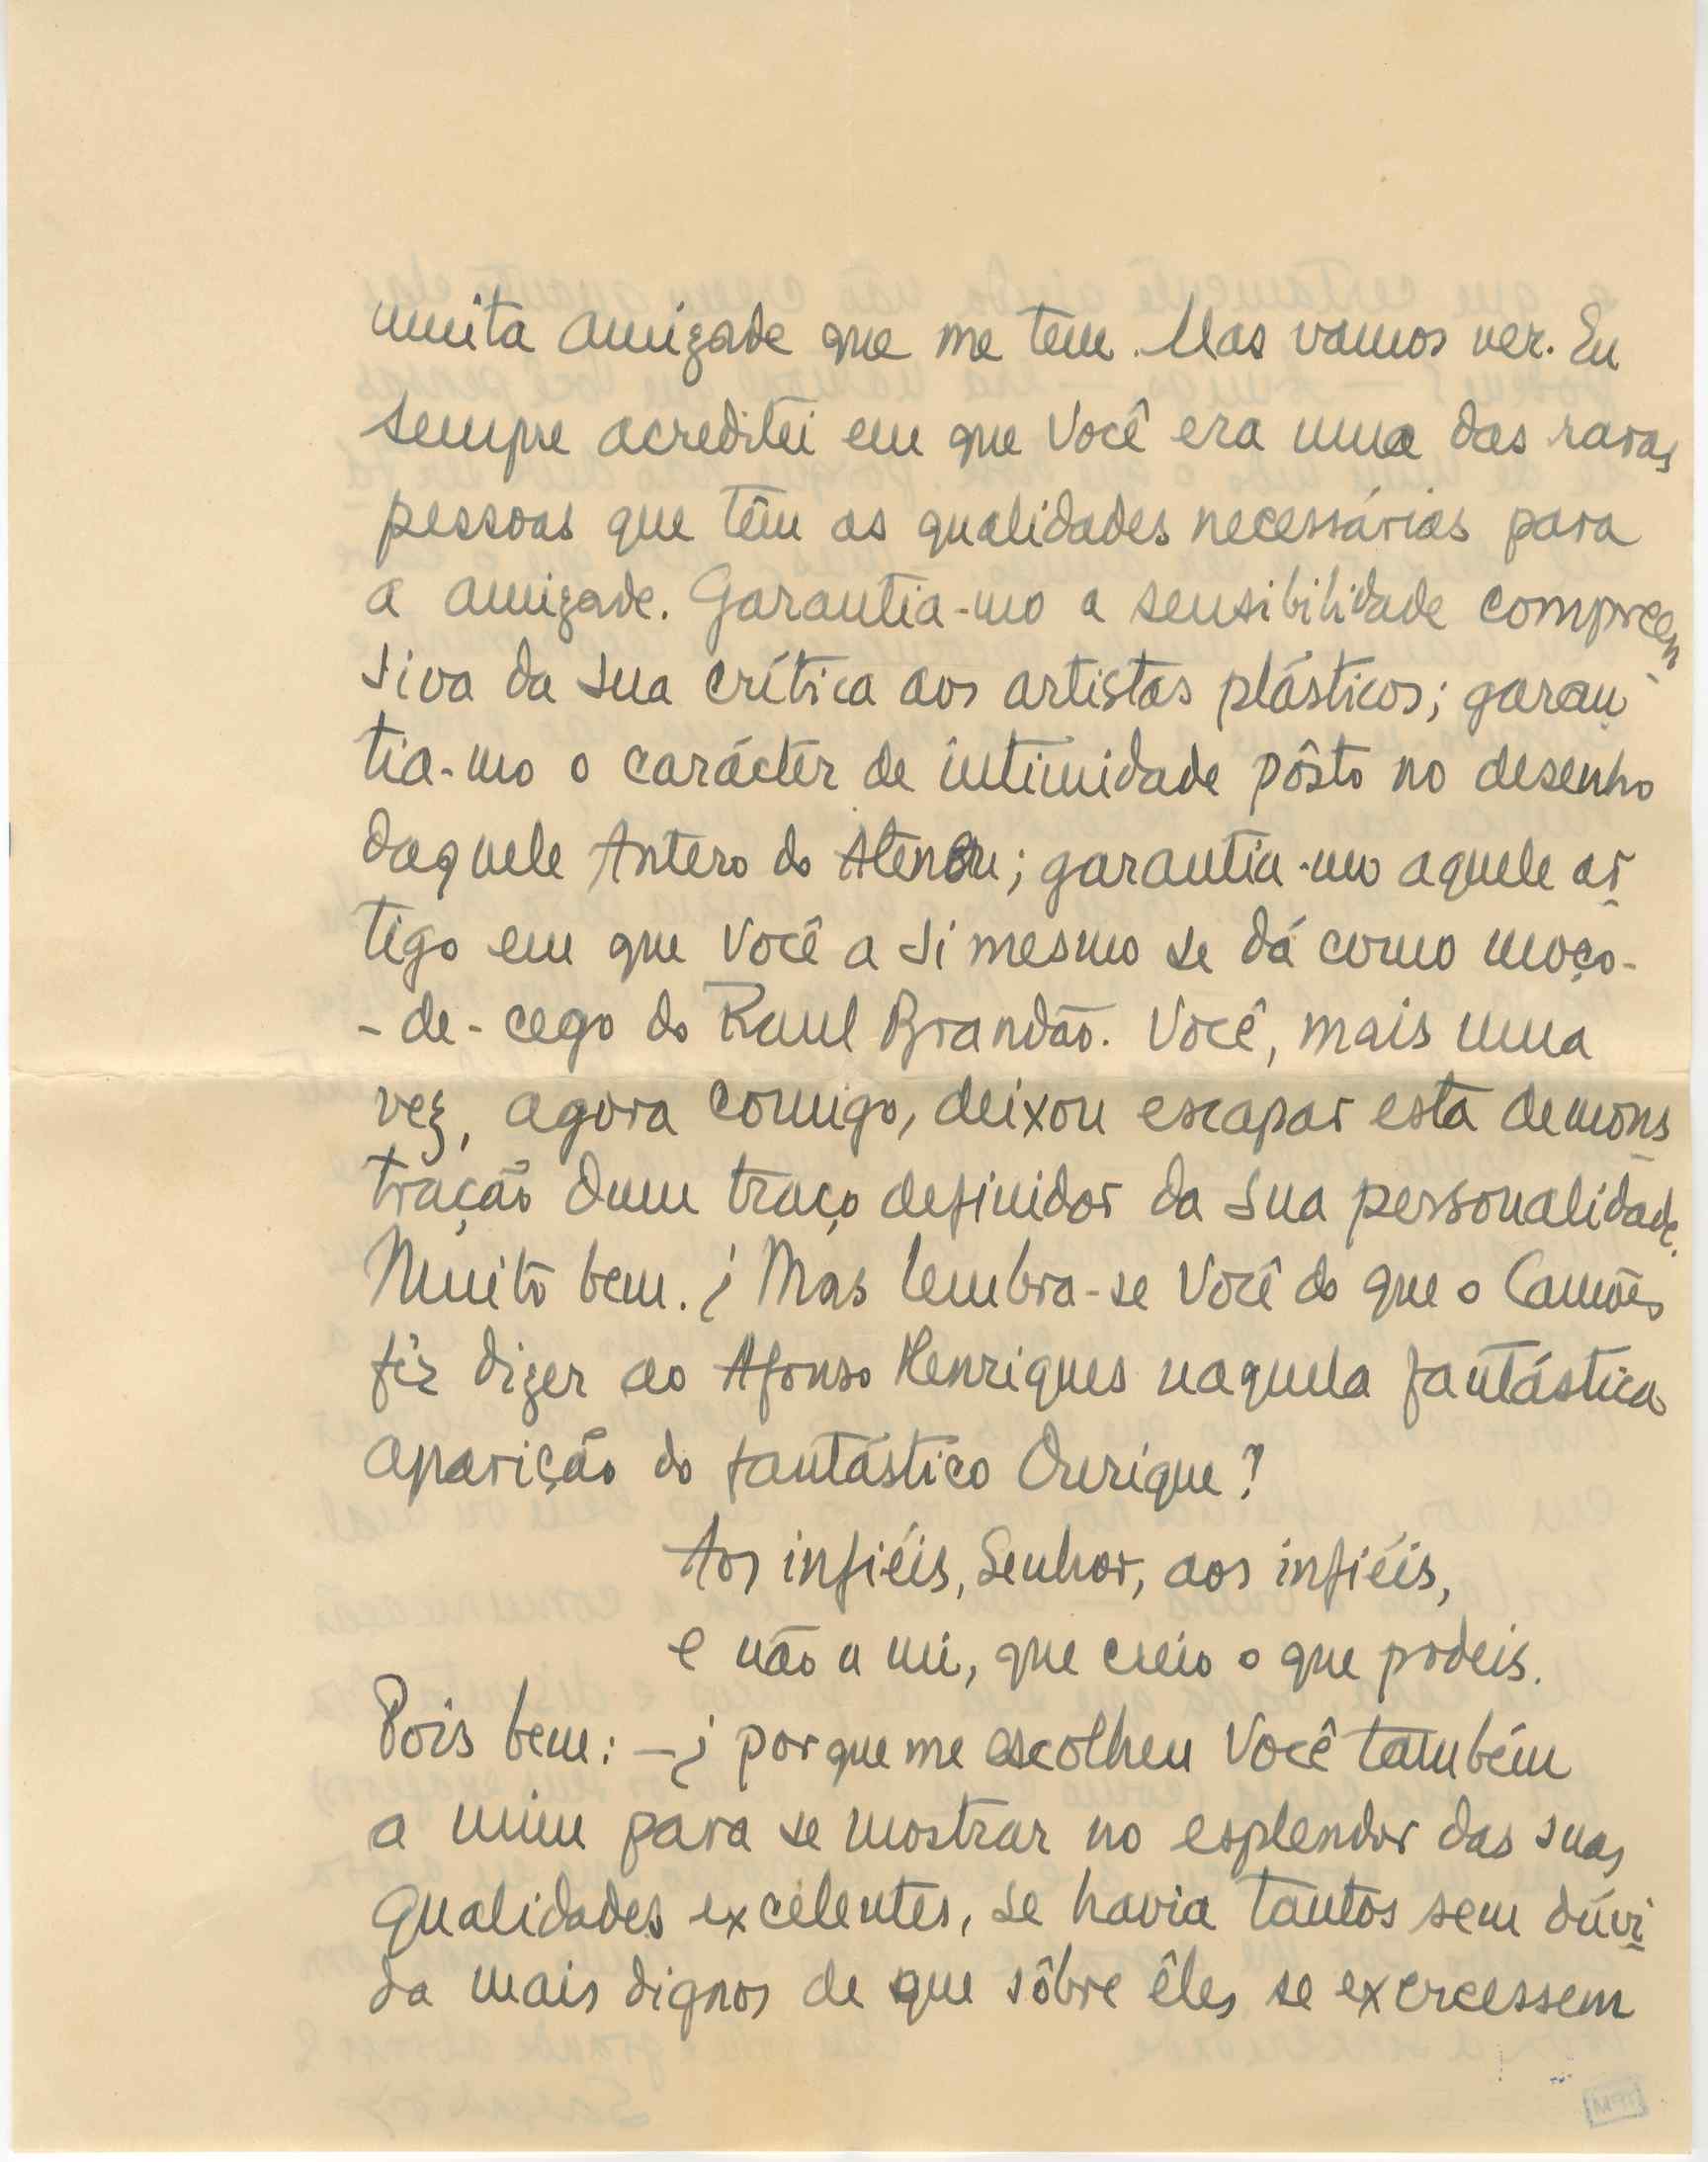 muita amizade que me tem. Mas vamos ver. Eu
sempre acreditei em que Você era uma das raras
pessoas que têm as qualidades necessárias para
a amizade. Garantia-mo a sensibilidade compreen
siva da sua crítica aos artistas plásticos; garan
tia-mo o carácter de intimidade pôsto no desenho
daquele Antero do Ateneu; garantia-mo aquele ar
tigo em que Você a si mesmo se dá como moço-
-de-cego do Raul Brandão. Você, mais uma
vez, agora comigo, deixou escapar esta demons
tração dum traço definidor da sua personalidade.
Muito bem. ¿Mas lembra-se Você do que o Camões
fêz dizer ao Afonso Henriques naquela fantástica
aparição do fantástico Ourique?
Aos infiéis, Senhor, aos infiéis,
e não a mi, que creio o que podeis.
Pois bem: — ¿ porque me escolheu Você também
a mim para se mostrar no esplendor das suas
qualidades excelentes, se havia tantos sem dúvi
da mais dignos de que sôbre êles se exercessem